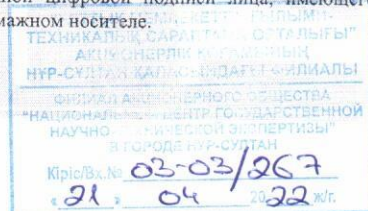 ной цифровой подписи лица, имеющего
мажном носителе.
ТЕХНИКАЛЫҚ САРАПТАМА ОРТАЛЫҒЫ"
АКЦИОНЕРЛІК ҚОҒАМЫНЫҢ
НҰР-СҰЛТАН ҚАЛАСЫНДАҒЫ ФИЛИАЛЫ
ФИЛИАЛ АКЦИОНЕРНОГО ОБЩЕСТВА
"НАЦИОНАЛЬНЫЙ ЦЕНТР ГОСУДАРСТВЕННОЙ
НАУЧНО-ТЕХНИЧЕСКОЙ ЭКСПЕРТИЗЫ"
В ГОРОДЕ НУР-СУЛТАН
Кіріс/Вх.№ 03-03/267
« 21 » 04 2022 ж/г.